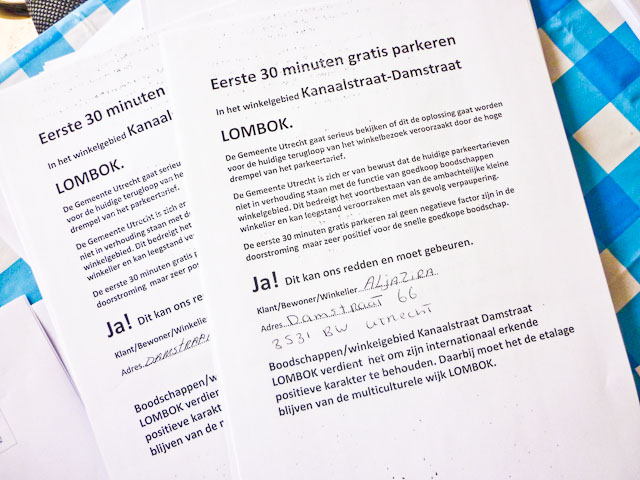 Eerste 30 minuten
In het winkelgebied Kanaal
LOMBOK.
De Gemeente Utrecht gaat serieus
voor de huidige terugloop van he
drempel van het parkeertarief.
De Gemeente Utrecht is zich er
niet in verhouding staan met d
winkelgebied. Dit bedreigt het
winkelier en kan leegstand ver
De eerste 30 minuten gratis p
doorstroming maar zeer posit
Ja! Dit kan ons redden
Klant/Bewoner/Winkelier
Adres. DAMSTRAA
Boodschappen/w
LOMBOK verdien
positieve karakt
blijven van de m
Eerste 30 minuten gratis parkeren
In het winkelgebied Kanaalstraat-Damstraat
LOMBOK.
De Gemeente Utrecht gaat serieus bekijken of dit de oplossing gaat worden
voor de huidige terugloop van het winkelbezoek veroorzaakt door de hoge
drempel van het parkeertarief.
De Gemeente Utrecht is zich er van bewust dat de huidige parkeertarieven
niet in verhouding staan met de functie van goedkoop boodschappen
winkelgebied. Dit bedreigt het voortbestaan van de ambachtelijke kleine
winkelier en kan leegstand veroorzaken met als gevolg verpaupering.
De eerste 30 minuten gratis parkeren zal geen negatieve factor zijn in de
doorstroming maar zeer positief voor de snelle goedkope boodschap.
Ja! Dit kan ons redden en moet gebeuren.
Klant/Bewoner/Winkelier ALjAZIRA
Adres. Damstraat 66
3531 BW Utrecht
Boodschappen/winkelgebied Kanaalstraat Damstraat
LOMBOK verdient het om zijn internationaal erkende
positieve karakter te behouden. Daarbij moet het de etalage
blijven van de multiculturele wijk LOMBOK.